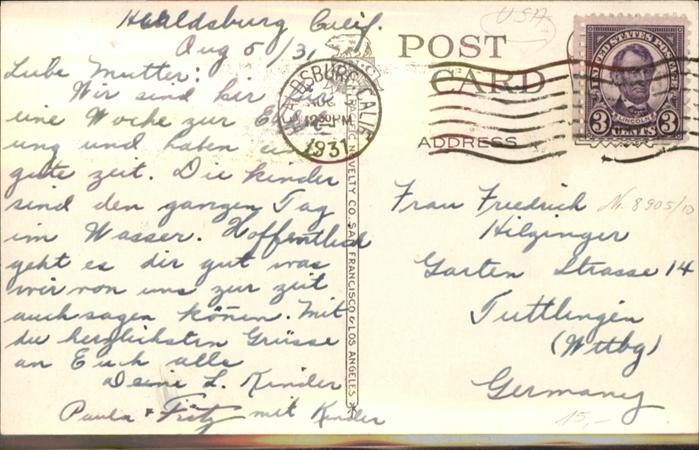 Healdsburg Calif.
Aug 5/31
Liebe Mutter:
Wir sind hier für
eine Woche zur
ung und haben eine
gute zeit. Die kinder
sind den ganzen Tag
im Wasser. Hoffentlich
geht es dir gut was
wir von uns zur zeit
auch sagen können. Mit
die herzlichsten Grüsse
an Euch alle
Deine L. Kinder
Paula + Fritz mit Kinder
USA
POST
CARD
ADDRESS
HEALDSBURG, CALIF.
AUG
12:30 PM
1931
UNITED STATES POSTAGE
LINCOLN
3 CENTS 3
NOVELTY CO. SAN FRANCISCO & LOS ANGELES
Frau Friedrich
Nr. 8905/10
Hilzinger
Garten Strasse 14
Tuttlingen
(Wttbg)
Germany
15,-